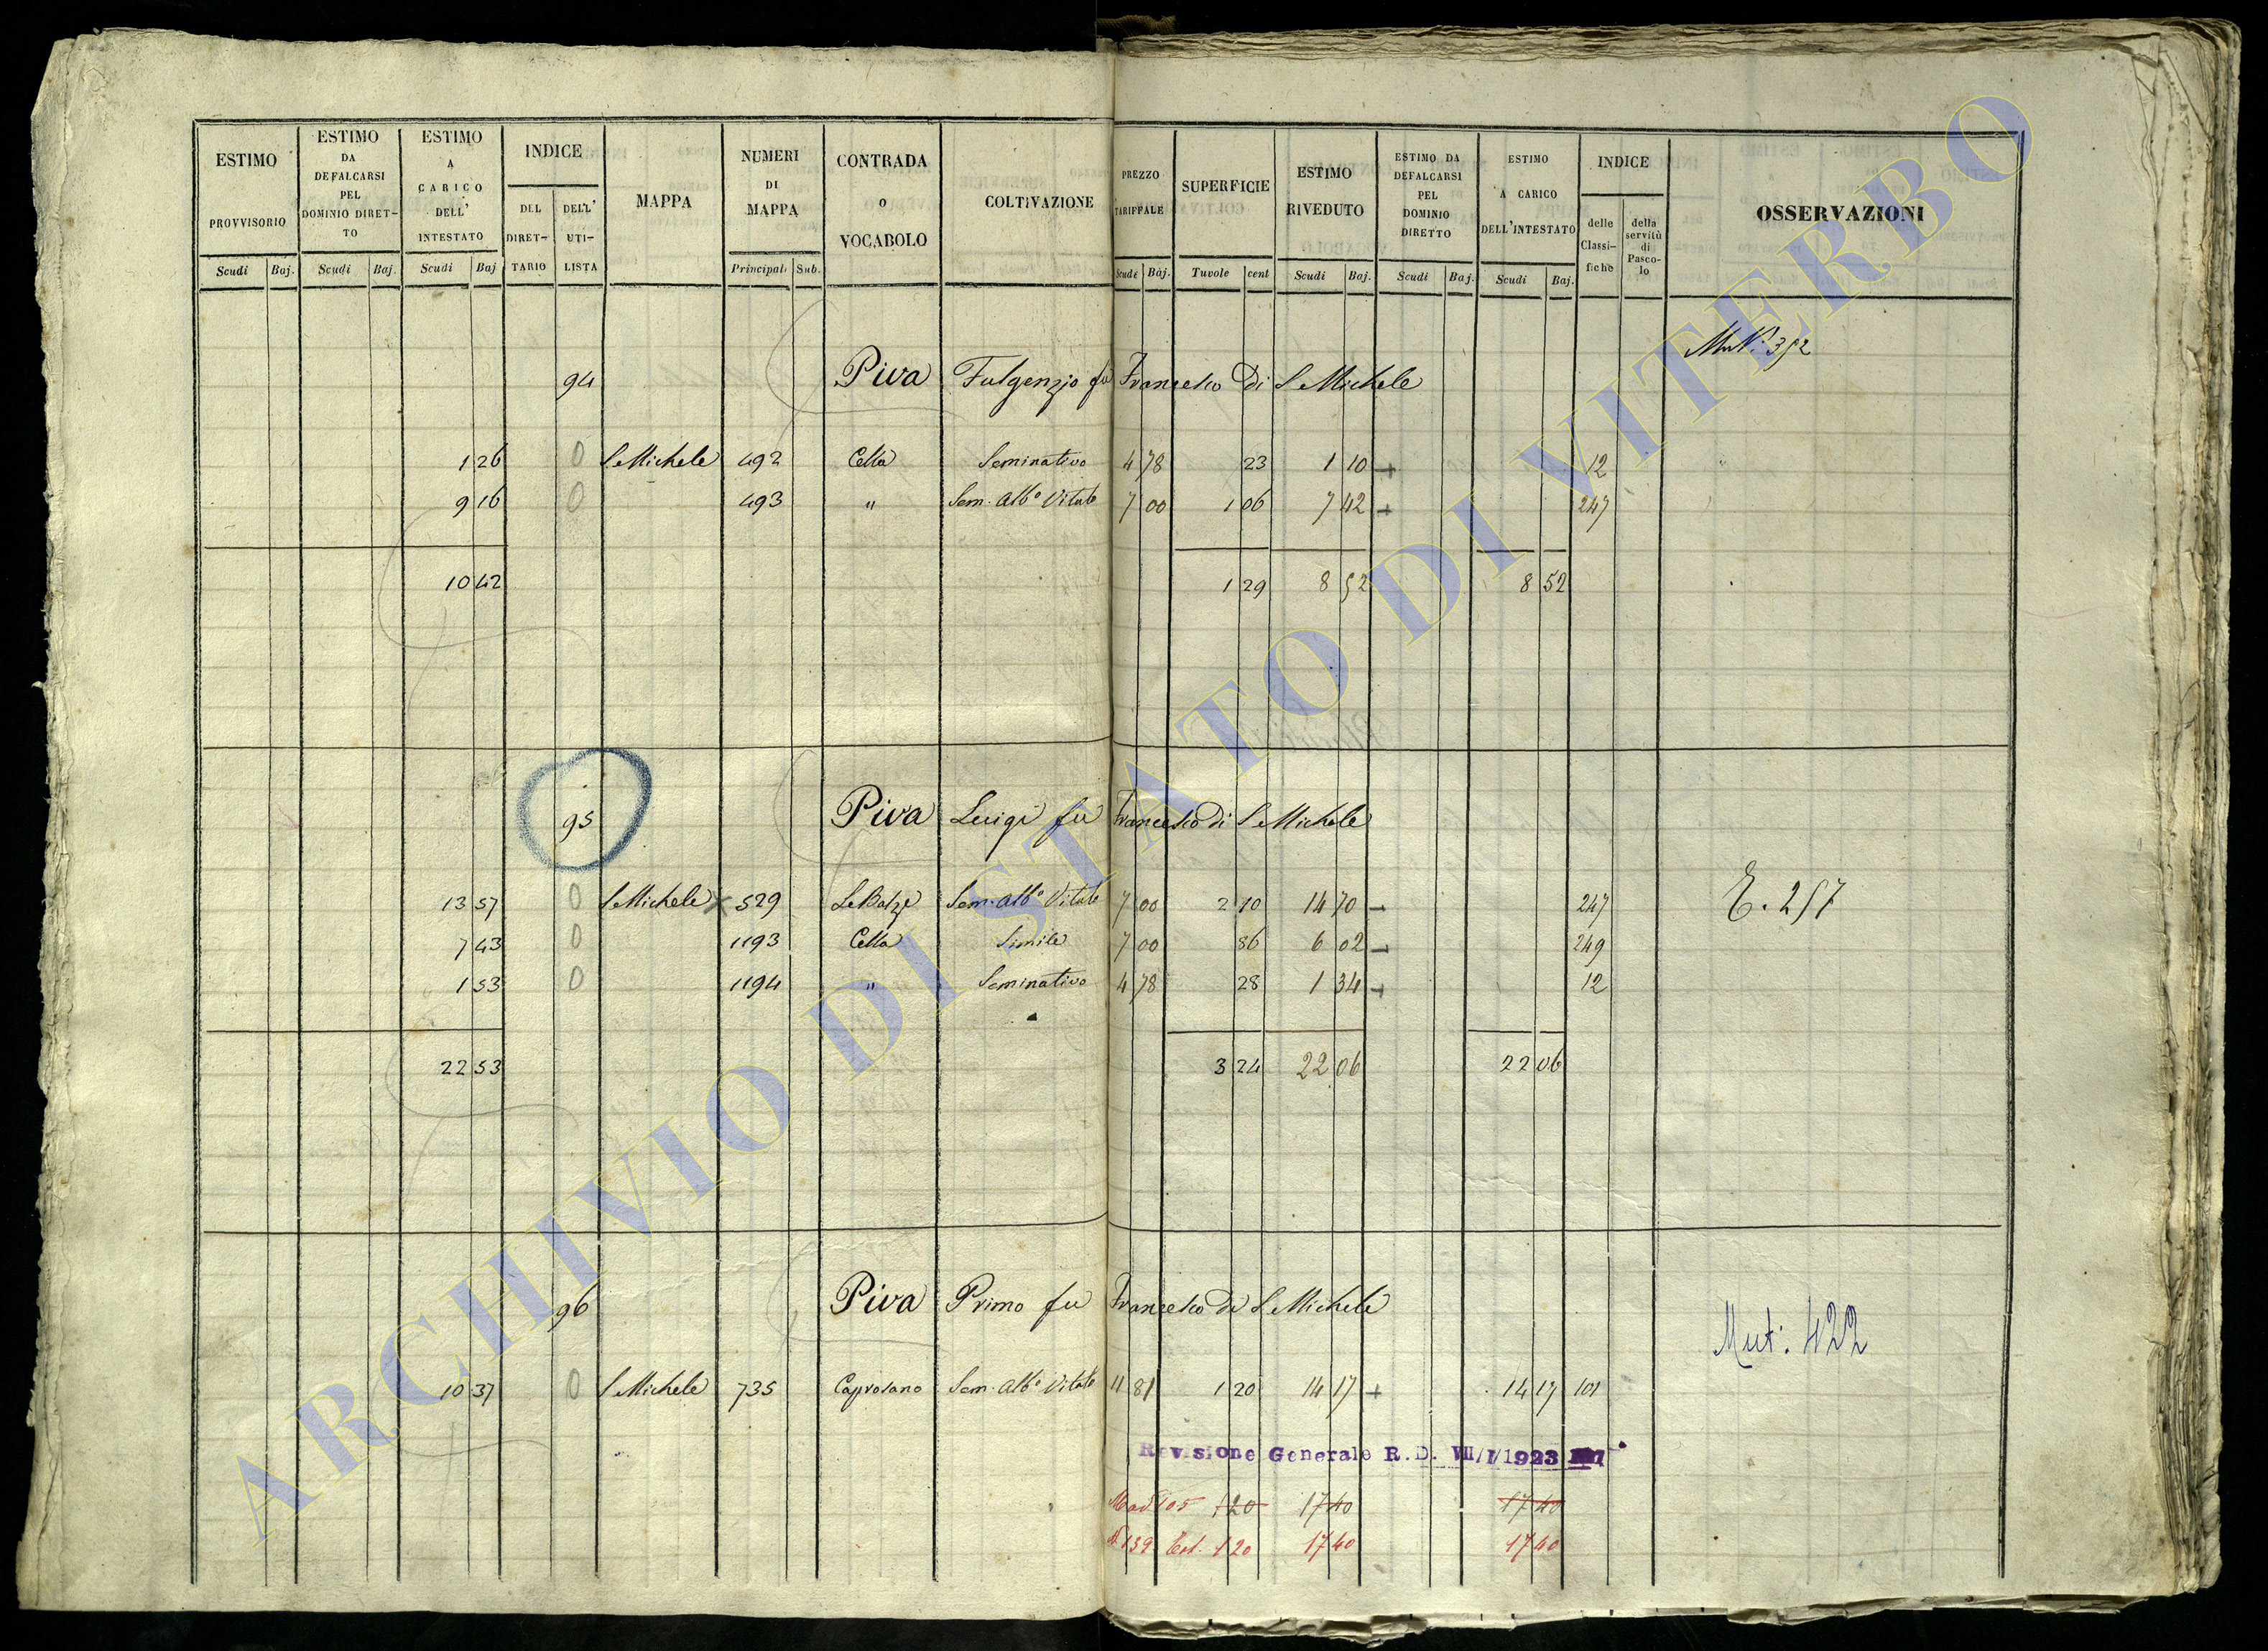 ESTIMO PROVVISORIO Scudi Baj.
ESTIMO DA DEFALCARSI PEL DOMINIO DIRETTO Scudi Baj.
ESTIMO A CARICO DELL' INTESTATO Scudi Baj
INDICE DEL DIRETTARIO DELL' UTILISTA
MAPPA
NUMERI DI MAPPA Principali Sub.
CONTRADA O VOCABOLO
COLTIVAZIONE
PREZZO TARIFFALE Scudi Baj.
SUPERFICIE Tavole cent
ESTIMO RIVEDUTO Scudi Baj.
ESTIMO DA DEFALCARSI PEL DOMINIO DIRETTO Scudi Baj.
ESTIMO A CARICO DELL'INTESTATO Scudi Baj.
INDICE delle Classifiche della servitù di Pascolo
OSSERVAZIONI
94 Piva Fulgenzio fu Francesco di S Michele
1 26 0 S Michele 492 Cella Seminativo 4 78 23 1 10 + 12
9 16 0 493 " Sem. Alb.o Vitato 7 00 1 06 7 42 + 247
10 42 1 29 8 52 8 52
95 Piva Luigi fu Francesco di S Michele
13 57 0 S Michele x 529 Le Balze Sem. Alb.o Vitato 7 00 2 10 14 70 247
E. 257
7 43 0 1193 Cella Simile 7 00 86 6 02 249
1 53 0 1194 " Seminativo 4 78 28 1 34 12
22 53 3 24 22 06 22 06
96 Piva Primo fu Francesco di S Michele
Mut: 422
10 37 0 S Michele 735 Sem. Alb.o Vitato 11 81 1 20 14 17 + 14 17 101
Revisione Generale R.D. VII/I/1923
105 1 20 17 40 17 40
139 1 20 17 40 17 40
ARCHIVIO DI STATO DI VITERBO